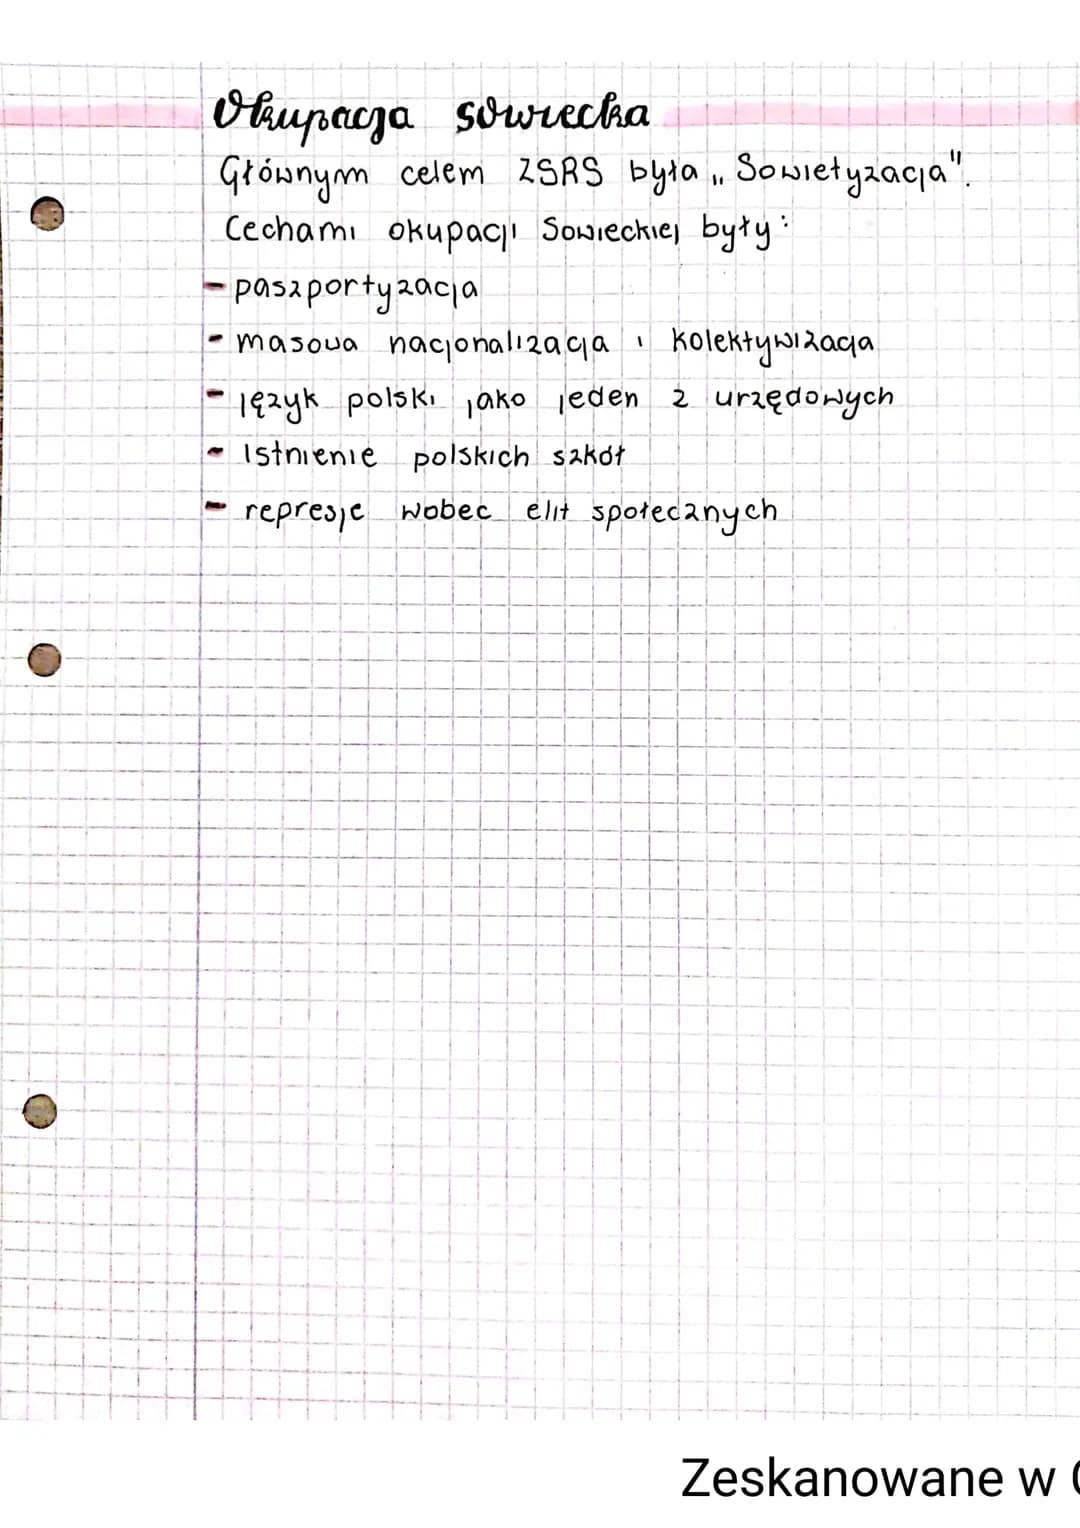 Okupacja sowiecka
Głównym celem ZSRS była „Sowietyzacja".
Cechami okupacji Sowieckiej były:
- paszportyzacja
- masowa nacjonalizacja i kolektywizacja
- język polski jako jeden z urzędowych
- Istnienie polskich szkół
- represje wobec elit społecznych
Zeskanowane w